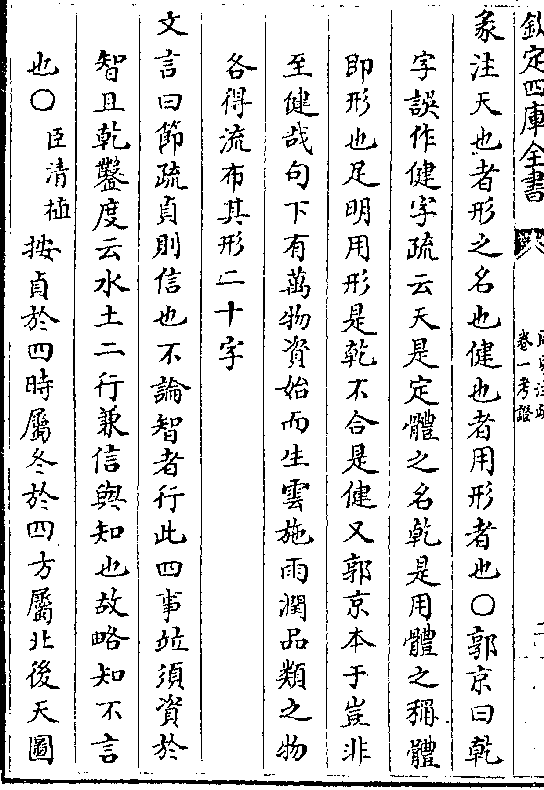 欽定四庫全書
卷一考證
彖注天也者形之名也健也者用形者也○郭京曰乾
字誤作健字疏云天是定體之名乾是用體之稱體
即形也足明用形是乾不合是健又郭京本于豈非
至健哉句下有萬物資始而生雲施雨潤品類之物
各得流布其形二十字
文言曰節疏貞則信也不論智者行此四事竝須資於
智且乾鑿度云水土二行兼信與知也故略知不言
也○臣清植按貞於四時屬冬於四方屬北後天圖